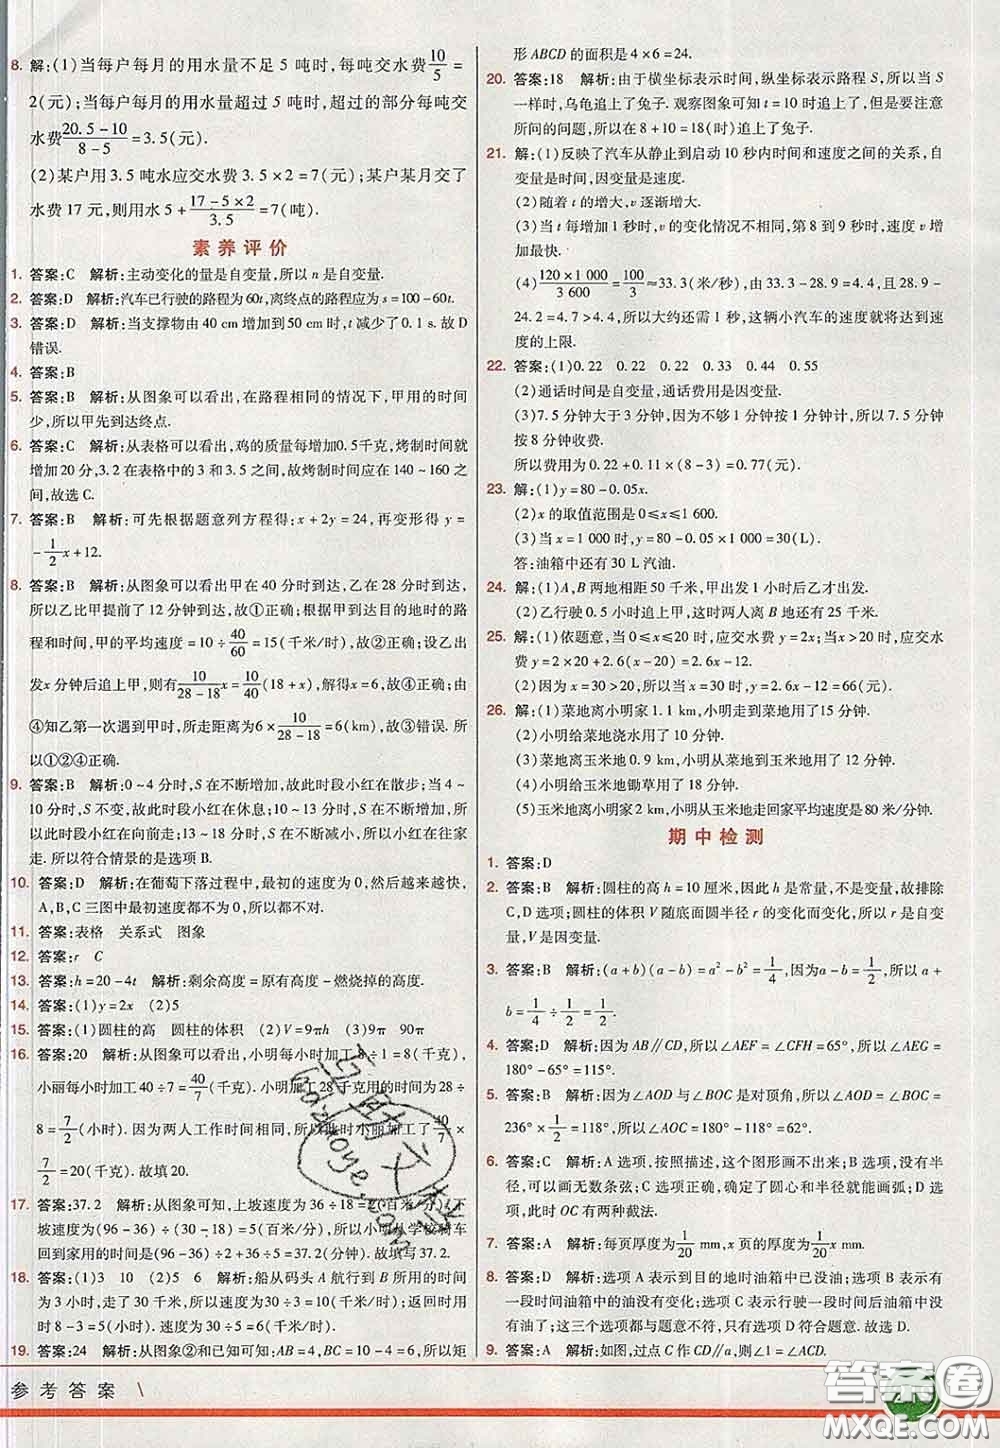 8. 解:(1)当每户每月的用水量不足 5 吨时,每吨交水费 10/5 =
2(元);当每户每月的用水量超过 5 吨时,超过的部分每吨交
水费 (20.5-10)/(8-5) =3.5(元).
(2)某户用 3.5 吨水应交水费 3.5×2=7(元);某户某月交了
水费 17 元,则用水 5+(17-5×2)/3.5=7(吨).
素养评价
1. 答案:C 解析:主动变化的量是自变量,所以 n 是自变量.
2. 答案:D 解析:汽车已行驶的路程为 60t,离终点的路程应为 s=100-60t.
3. 答案:D 解析:当支撑物由 40 cm 增加到 50 cm 时,t 减少了 0.1 s. 故 D
错误.
4. 答案:B
5. 答案:B 解析:从图象可以看出,在路程相同的情况下,甲用的时间
少,所以甲先到达终点.
6. 答案:C 解析:从表格可以看出,鸡的质量每增加0.5千克,烤制时间就
增加 20 分,3.2 在表格中的 3 和 3.5 之间,故烤制时间应在 140~160 之
间,故选 C.
7. 答案:B 解析:可先根据题意列方程得:x+2y=24,再变形得 y=
-1/2x+12.
8. 答案:B 解析:从图象可以看出甲在 40 分时到达,乙在 28 分时到达,
所以乙比甲提前了 12 分钟到达;故①正确;根据甲到达目的地时的路
程和时间,甲的平均速度=10÷40/60=15(千米/时);故②正确;设乙出
发 x 分钟后追上甲,则有 10/(28-18)x=10/40(18+x),解得 x=6,故④正确;由
④知乙第一次遇到甲时,所走距离为 6×10/(28-18)=6(千米),故③错误. 所
以①②④正确.
9. 答案:B 解析:0~4 分时,S 在不断增加,故此时段小红在散步;当 4~
10分时,S 不变,故此时段小红在休息;10~13 分时,S 在不断增加,所
以此时段小红在向前走;13~18 分,S 在不断减小,所以小红在往家
走. 所以符合情景的是选项 B.
10. 答案:D 解析:在葡萄下落过程中,最初的速度为 0,然后越来越快,
A,B,C 三图中最初速度都不为 0,所以都不对.
11. 答案:表格 关系式 图象
12. 答案:r C
13. 答案:h=20-4t 解析:剩余高度=原有高度-燃烧掉的高度.
14. 答案:(1)y=2x (2)5
15. 答案:(1)圆柱的高 圆柱的体积 (2)V=9πh (3)9π 90π
16. 答案:20 解析:从图象可以看出,小明每小时加工 8÷1=8(千克),
小丽每小时加工 40÷7=40/7(千克). 小明加工 28 千克用的时间为 28÷
8=7/2(小时). 因为两人工作时间相同,所以此时小丽加工了 40/7×
7/2=20(千克). 故填 20.
17. 答案:37.2 解析:从图象可知,上坡速度为 36÷18=2(百米/分),下
坡速度为(96-36)÷(30-18)=5(百米/分),所以小明从学校骑车
回到家用的时间为(96-36)÷2+36÷5=37.2(分钟). 故填写 37.2.
18. 答案:(1)3 10 (2)5 6 解析:船从码头 A 航行到 B 所用的时间
为 3 小时,走了 30 千米,所以速度为 30÷3=10(千米/时);返回时用
时 8-3=5(小时). 速度为 30÷5=6(千米/时).
19. 答案:24 解析:从图象②和已知可知:AB=4,BC=10-4=6,所以矩
形 ABCD 的面积是 4×6=24.
20. 答案:18 解析:由于横坐标表示时间,纵坐标表示路程 S,所以当 S
一样时,乌龟追上了兔子. 观察图象可知 t=10 时追上了,但是要注意
所问的问题,所以在 8+10=18(时)追上了兔子.
21. 解:(1)反映了汽车从静止到启动 10 秒内时间和速度之间的关系,自
变量是时间,因变量是速度.
(2)随着 t 的增大,v 逐渐增大.
(3)当 t 每增加 1 秒时,v 的变化情况不相同. 第 8 到 9 秒时,速度 v
增加最快.
(4)(120×1 000)/(3 600)=100/3≈33.3(米/秒),由 33.3-28.9=4.4,且 28.9-
24.2=4.7>4.4,所以大约还需 1 秒,这辆小汽车的速度就将达到速
度的上限.
22. 答案:(1)0.22 0.22 0.33 0.44 0.55
(2)通话时间是自变量,通话费用是因变量.
(3)7.5 分钟大于 3 分钟,因为不够 1 分钟按 1 分钟计,所以 7.5 分钟
按 8 分钟收费.
所以费用为 0.22+0.11×(8-3)=0.77(元).
23. 解:(1)y=80-0.05x.
(2)x 的取值范围是 0≤x≤1 600.
(3)当 x=1 000 时,y=80-0.05×1 000=30(L)
答:油箱中还有 30 L 汽油.
24. 解:(1)A,B 两地相距 50 千米,甲出发 1 小时后乙才出发.
(2)乙行驶 0.5 小时追上甲,这时两人离 B 地还有 25 千米.
25. 解:(1)依题意,当 0≤x≤20 时,应交水费 y=2x;当 x>20 时,应交水
费 y=2×20+2.6(x-20)=2.6x-12.
(2)因为 x=30>20,所以 y=2.6×30-12=66(元).
26. 解:(1)菜地离小明家 1.1 km,小明走到菜地用了15分钟.
(2)小明给菜地浇水用了 10 分钟.
(3)菜地离玉米地 0.9 km,小明从菜地到玉米地用了 12 分钟.
(4)小明给玉米地锄草用了 18 分钟.
(5)玉米地离小明家 2 km,小明从玉米地走回家平均速度是 80 米/分钟.
期中检测
1. 答案:D
2. 答案:B 解析:圆柱的高 h=10 厘米,因此 h 是常量,不是变量,故排除
C,D 选项;圆柱的体积 V 随底面圆半径 r 的变化而变化,所以 r 是自变
量,V 是因变量.
3. 答案:B 解析:(a+b)(a-b)=a²-b²=1/4,因为a-b=1/2,所以 a+
b=1/4÷1/2=1/2.
4. 答案:D 解析:因为 AB∥CD,所以∠AEF=∠CFH=65°,∠AEG=
180°-65°=115°.
5. 答案:D 解析:因为∠AOD 与∠BOC 是对顶角,所以∠AOD=∠BOC=
236°×1/2=118°,所以∠AOC=180°-∠BOC=180°-118°=62°.
6. 答案:C 解析:A 选项,按照描述,这个图形画不出来;B 选项,一个圆
可以画无数条弦;C 选项正确,确定了圆心和半径就能画出圆;D 选
项,此时 OC 有两种截法.
7. 答案:A 解析:每页厚度为1/20 mm,x 页的厚度等于1/20x mm.
8. 答案:D 解析:选项 A 表示到目的地时油箱中已没油;选项 B 表示有
一段时间油箱中的油没有变化;选项 C 表示行驶一段时间后油箱中
没有油了;这三个选项都与题意不符,只有选项 D 符合题意. 故选 D.
9. 答案:A 解析:如图,过点 C 作 CD∥a,则∠1=∠ACD.
参考答案
答案圈
MXQE.COM